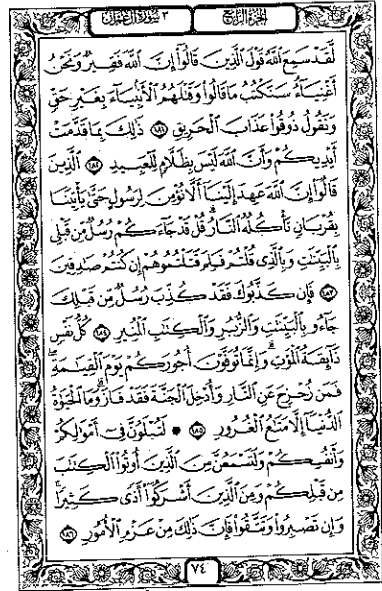 الجزء الرابع
٣ سورة آل عمران
لَّقَدْ سَمِعَ ٱللَّهُ قَوْلَ ٱلَّذِينَ قَالُوٓا۟ إِنَّ ٱللَّهَ فَقِيرٌ وَنَحْنُ
أَغْنِيَآءُ سَنَكْتُبُ مَا قَالُوا۟ وَقَتْلَهُمُ ٱلْأَنۢبِيَآءَ بِغَيْرِ حَقٍّ
وَنَقُولُ ذُوقُوا۟ عَذَابَ ٱلْحَرِيقِ ١٨١ ذَٰلِكَ بِمَا قَدَّمَتْ
أَيْدِيكُمْ وَأَنَّ ٱللَّهَ لَيْسَ بِظَلَّامٍ لِّلْعَبِيدِ ١٨٢ ٱلَّذِينَ
قَالُوٓا۟ إِنَّ ٱللَّهَ عَهِدَ إِلَيْنَآ أَلَّا نُؤْمِنَ لِرَسُولٍ حَتَّىٰ يَأْتِيَنَا
بِقُرْبَانٍ تَأْكُلُهُ ٱلنَّارُ ۗ قُلْ قَدْ جَآءَكُمْ رُسُلٌ مِّن قَبْلِى
بِٱلْبَيِّنَٰتِ وَبِٱلَّذِى قُلْتُمْ فَلِمَ قَتَلْتُمُوهُمْ إِن كُنتُمْ صَٰدِقِينَ
١٨٣ فَإِن كَذَّبُوكَ فَقَدْ كُذِّبَ رُسُلٌ مِّن قَبْلِكَ
جَآءُو بِٱلْبَيِّنَٰتِ وَٱلزُّبُرِ وَٱلْكِتَٰبِ ٱلْمُنِيرِ ١٨٤ كُلُّ نَفْسٍ
ذَآئِقَةُ ٱلْمَوْتِ ۗ وَإِنَّمَا تُوَفَّوْنَ أُجُورَكُمْ يَوْمَ ٱلْقِيَٰمَةِ ۖ
فَمَن زُحْزِحَ عَنِ ٱلنَّارِ وَأُدْخِلَ ٱلْجَنَّةَ فَقَدْ فَازَ ۗ وَمَا ٱلْحَيَوٰةُ
ٱلدُّنْيَآ إِلَّا مَتَٰعُ ٱلْغُرُورِ ١٨٥ لَتُبْلَوُنَّ فِىٓ أَمْوَٰلِكُمْ
وَأَنفُسِكُمْ وَلَتَسْمَعُنَّ مِنَ ٱلَّذِينَ أُوتُوا۟ ٱلْكِتَٰبَ
مِن قَبْلِكُمْ وَمِنَ ٱلَّذِينَ أَشْرَكُوٓا۟ أَذًى كَثِيرًا ۚ
وَإِن تَصْبِرُوا۟ وَتَتَّقُوا۟ فَإِنَّ ذَٰلِكَ مِنْ عَزْمِ ٱلْأُمُورِ ١٨٦
٧٤